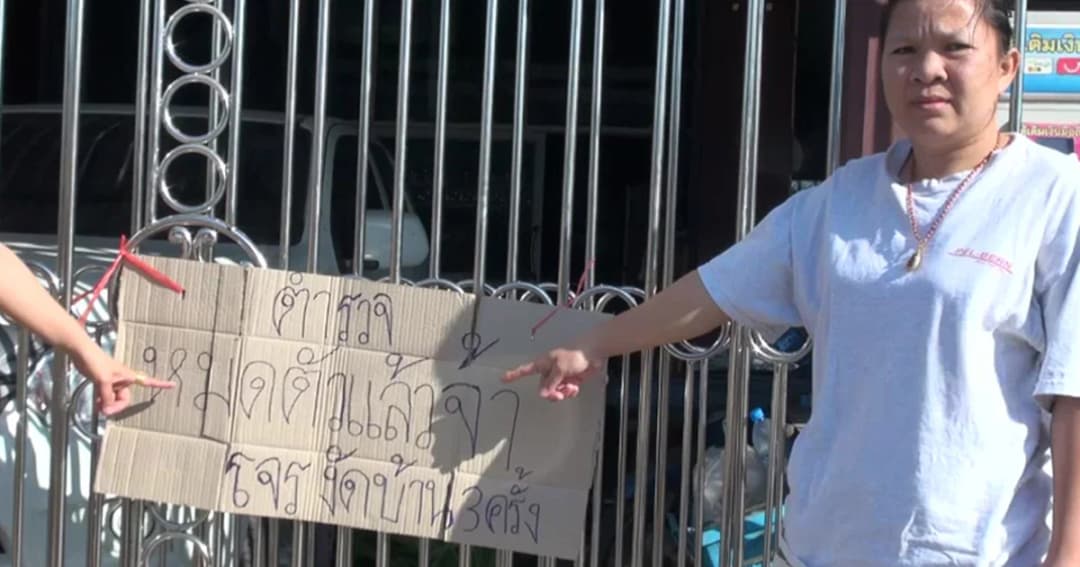 ตำรวจ
หมดตัวแล้วจ้า
โจรงัดบ้าน 3 ครั้ง
เติมเงิน